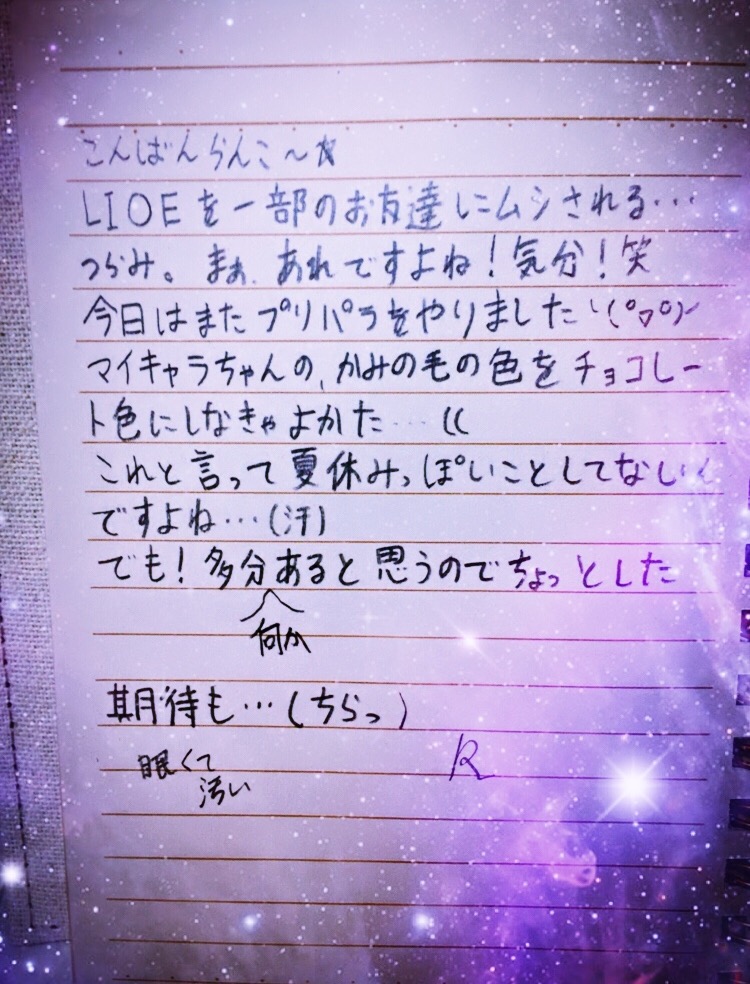 こんばんらんこ〜☆
LIOEを一部のお友達にムシされる…
つらみ。まぁ、あれですよね！気分！笑
今日はまたプリパラをやりました╰(°▽°)╯
マイキャラちゃんの、かみの毛の色をチョコレー
ト色にしなきゃよかた…((
これと言って夏休みっぽいことしてない
ですよね…(汗)
でも！多分あると思うのでちょっとした
何か
期待も…(ちらっ)
眠くて
汚い
R